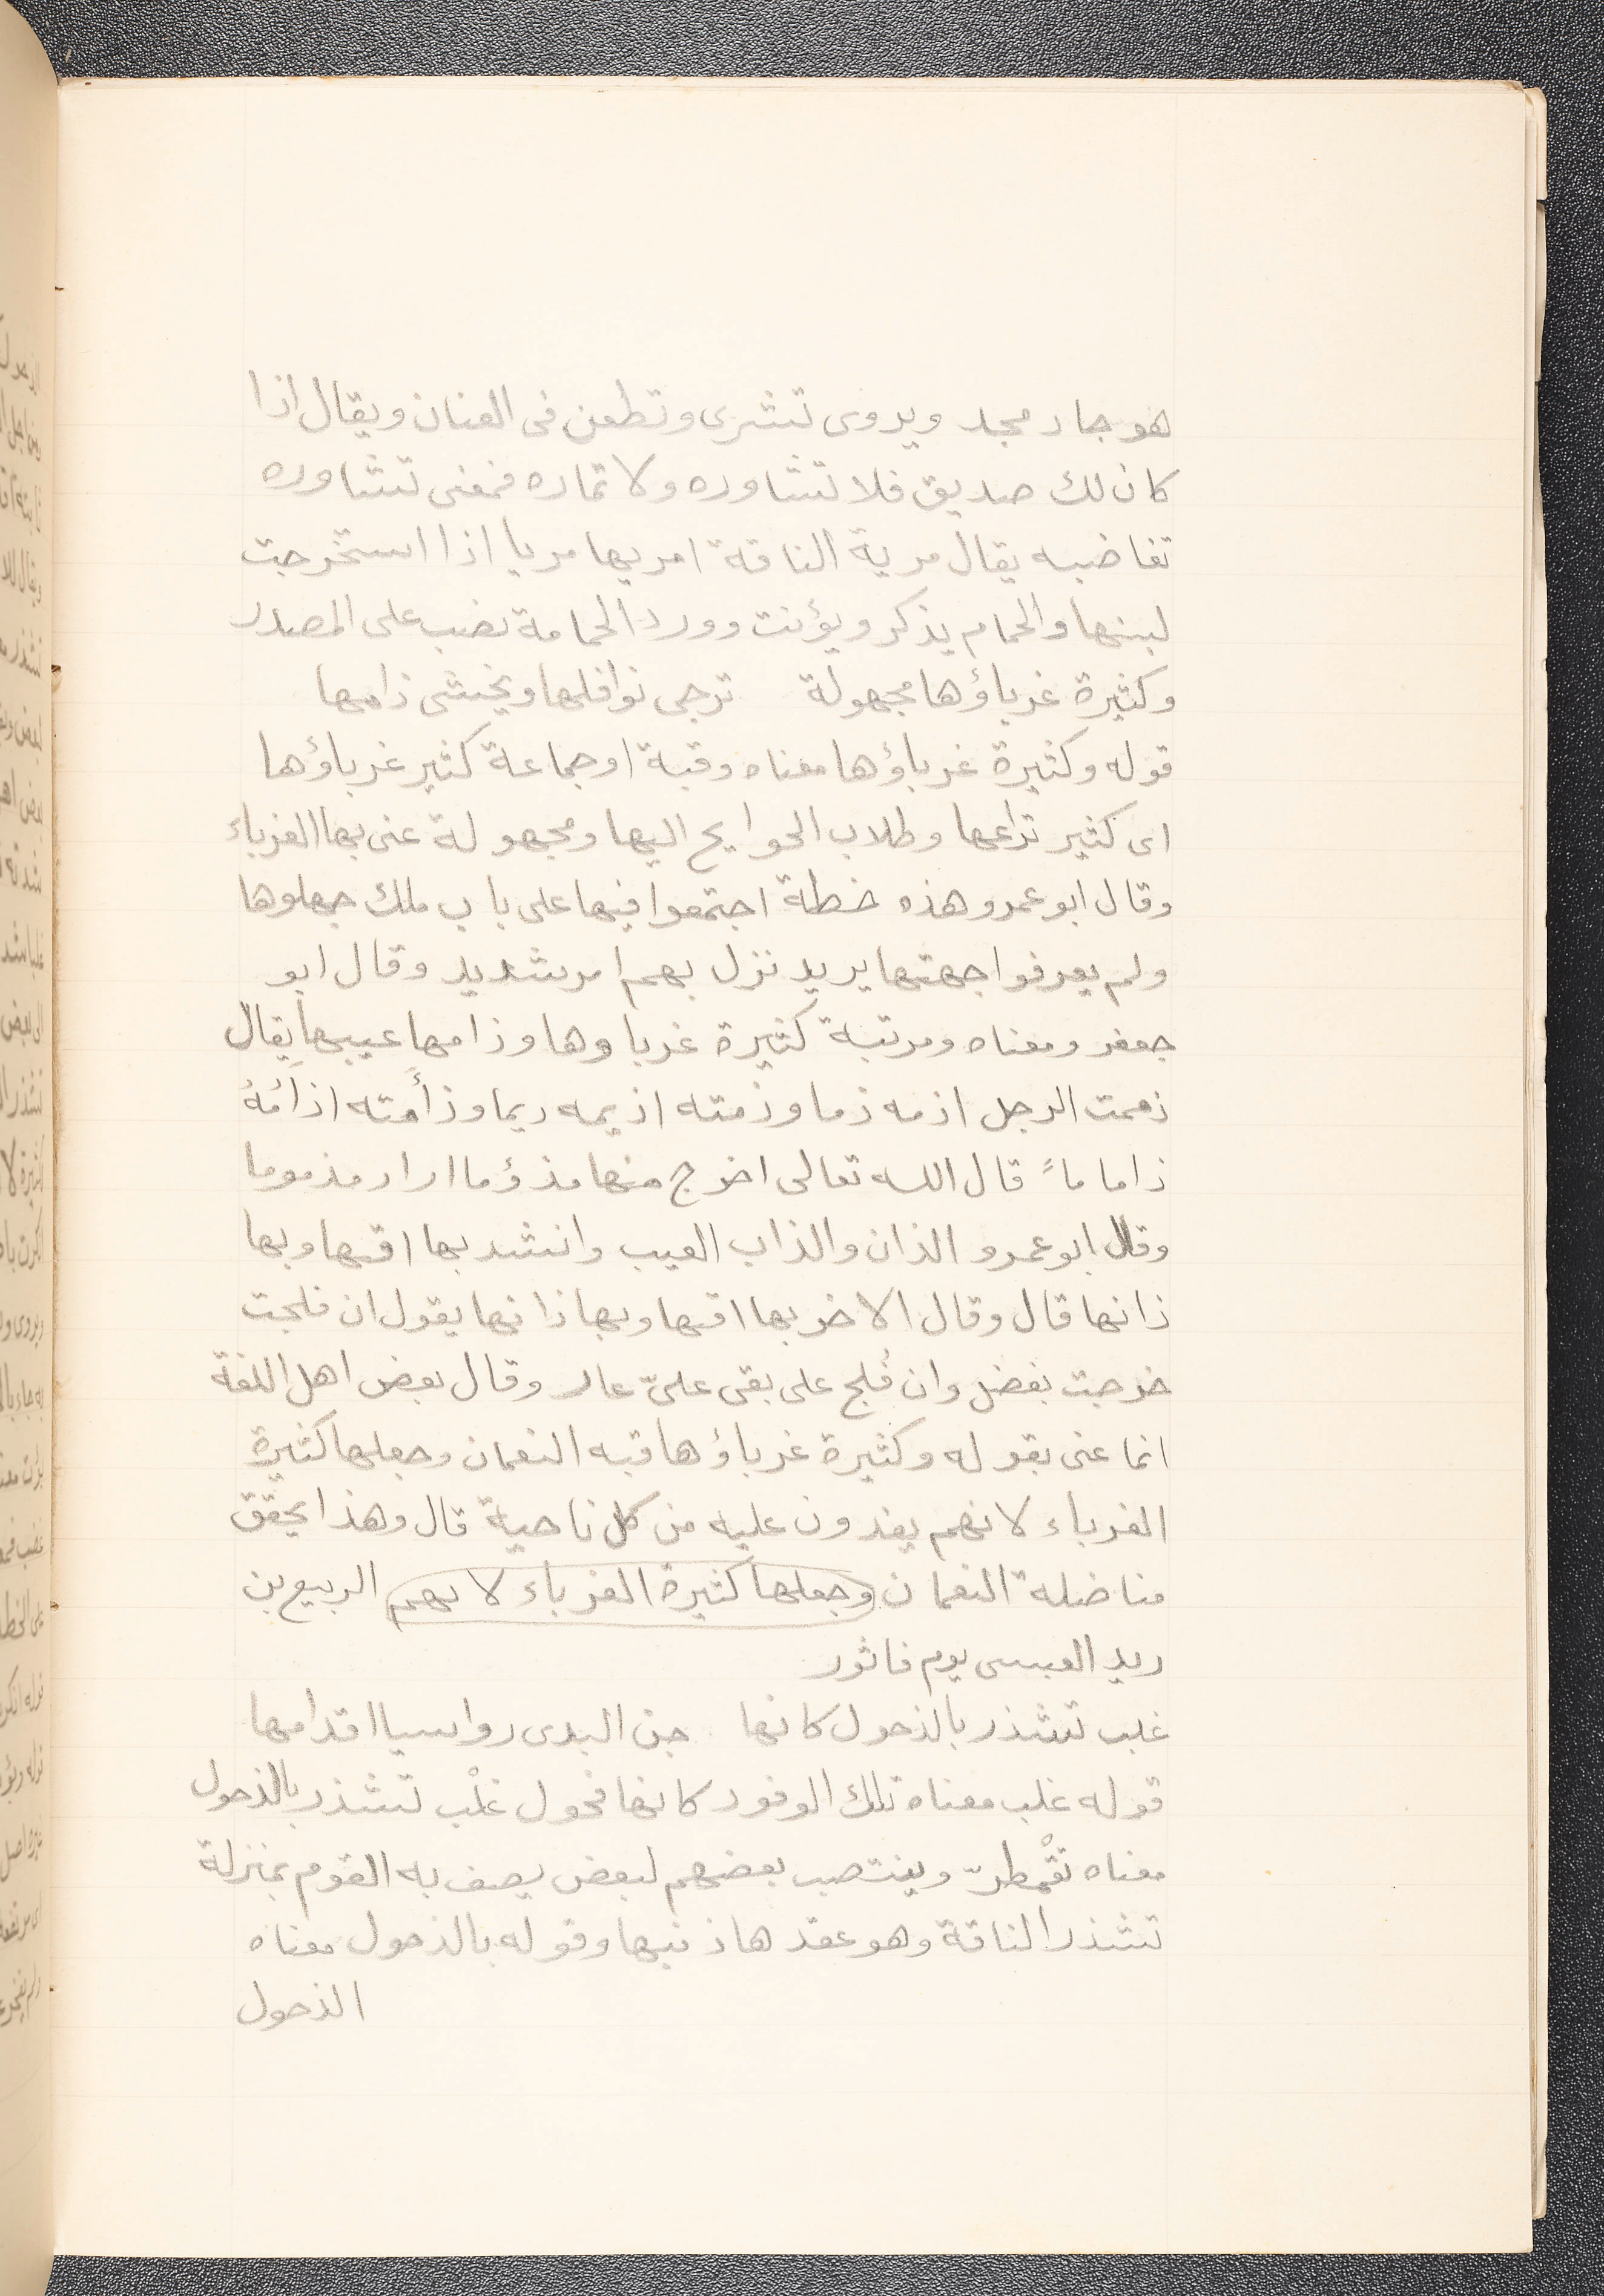 هو جاد مجد ويروى تتشرى وتطعن فى العنان ويقال اذا
كان لك صديق فلا تشاوره ولا تماره فمعنى تشاوره
تغاضبه يقال مرية الناقة امريها مريا اذا استخرجت
لبنها والحمام يذكر ويؤنت وورد الحمامة نصب على المصدر
وكثيرة غرباؤها مجهولة ترجى نوافلها ويخشى ذامها
قوله وكثيرة غرباؤها معناه وقبة او جماعة كثير غرباؤها
اى كثير تراعها وطلاب الحوايج اليها ومجهولة عنى بها الغرباء
وقال ابو عمرو هذه خطة اجتمعوا فيها على باب ملك جهلوها
ولم يعرفوا جهتها يريد نزل بهم امر شديد وقال ابو
جعفر ومعناه ومرتبة كثيرة غرباوها وذامها عيبها يقال
ذممت الرجل اذمه ذما وذمته اذيمه ريما وذأمته اذأمُهُ
ذاما ماً قال الله تعالى اخرج منها مذؤما اراد مذموما
وقال ابو عمرو الذان والذاب العيب وانشد بها افنها وبها
ذانها قال وقال الاخر بها افنها وبها ذانها يقول ان فلجت
خرجت بفضل وان فُلج على بقى علىّ عار وقال بعض اهل اللغة
انما عنى بقوله وكثيرة غرباؤها قبه النعمان وجعلها كثيرة
الغرباء لانهم يفدون عليه من كل ناحية قال وهذا يحقق
مناضلة النعمان وجعلها كثيرة الغرباء لانهم الربيع بن
ريد العبسى يوم فاثور
غلب تشذر بالذحول كانها جن البدى رواسيا اقدامها
قوله غلب معناه تلك الوفود كانها فحول غلْب تشذر بالذحول
معناه تقْمطرّ وينتصب بعضهم لبعض يصف به القوم بمنزلة
تشذر الناقة وهو عقدها ذنبها وقوله بالذحول معناه
الذحول